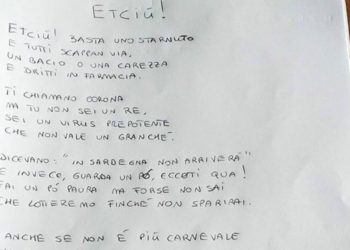 ETCIÙ!
ETCIÙ! BASTA UNO STARNUTO
E TUTTI SCAPPAN VIA,
UN BACIO O UNA CAREZZA
E DRITTI IN FARMACIA.
TI CHIAMANO CORONA
MA TU NON SEI UN RE,
SEI UN VIRUS PREPOTENTE
CHE NON VALE UN GRANCHÉ.
DICEVANO: "IN SARDEGNA NON ARRIVERÀ"
E INVECE, GUARDA UN PÓ, ECCOTI QUA!
FAI UN PÓ PAURA MA FORSE NON SAI
CHE LOTTEREMO FINCHÉ NON SPARIRAI.
ANCHE SE NON É PIÙ CARNEVALE